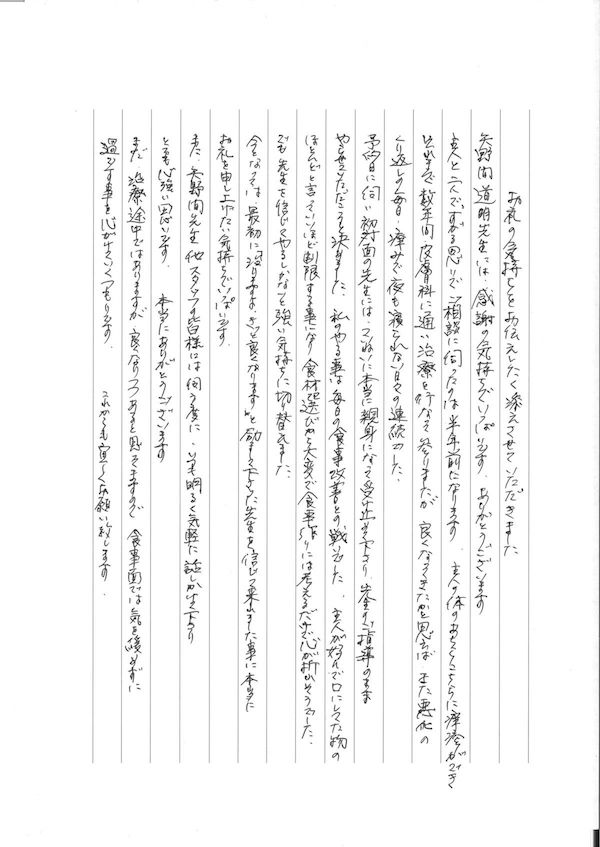 お礼の気持ちをお伝えしたく添えさせていただきました
矢野間道明先生には、感謝の気持ちでいっぱいです。ありがとうございます
主人と二人で、すがる思いでご相談に伺ったのは半年前になります。主人の体のあちこちに湿疹ができ
それまで数年間、皮膚科に通い治療を行なって参りましたが良くなってきたかと思えば、また悪化の
くり返しの毎日、痒みで夜も寝られない日々の連続でした。
予約日に伺い初対面の先生には、ていねいに本当に親身になって受け止めて下さり、先生のご指導のまま
やらせていただこうと決めました。私のやる事は毎日の食事改善との戦いでした。主人が好んで口にしてた物の
ほとんどと言っていいほど制限する事になり食材選びから大変で食事作りには考えるだけで心が折れそうでした。
でも先生を信じてやるしかないと強い気持ちに切り替えました。
今となっては、最初に「治りますよ、きっと良くなります」と励まして下さった先生を信じて来れました事に本当に
お礼を申し上げたい気持ちでいっぱいです。
また、矢野間先生、他スタッフの皆様には伺う度に、いつも明るく気軽に話しかけて下さり
とても心強い思いです。本当にありがとうございます
まだ治療途中ではありますが、良くなりつつあると思ってますので、食事面では気を緩めずに
過ごす事を心がけていくつもりです。これからも宜しくお願い致します。